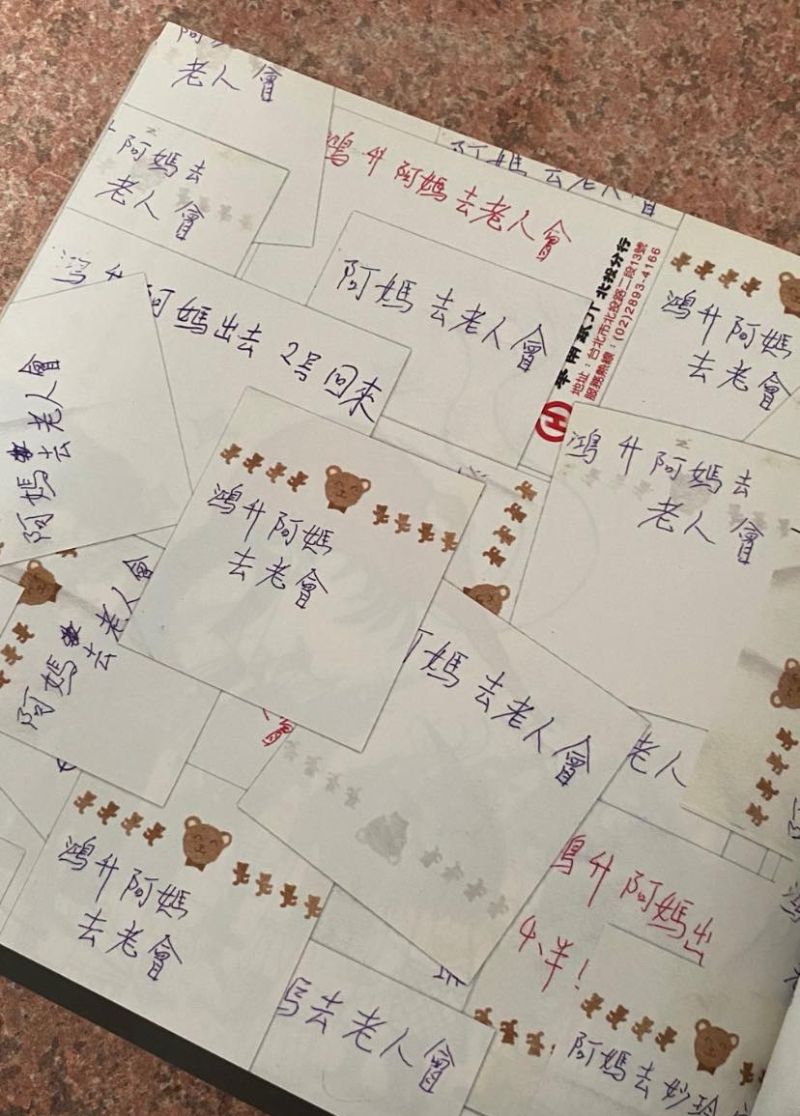 老人會
阿媽去
老人會
鴻升阿媽去老人會
阿媽去老人會
鴻升阿媽
去老會
阿媽去老人會
北投分行
地址：台北市北投路一段13號
服務熱線：(02)2893-4166
鴻升阿媽出去 2号回來
阿媽去老人會
鴻升阿媽去
老人會
鴻升阿媽
去老會
阿媽去老人會
媽去老人會
老人
鴻升阿媽
去老會
鴻升阿媽出
去老人會
阿媽去妙玲